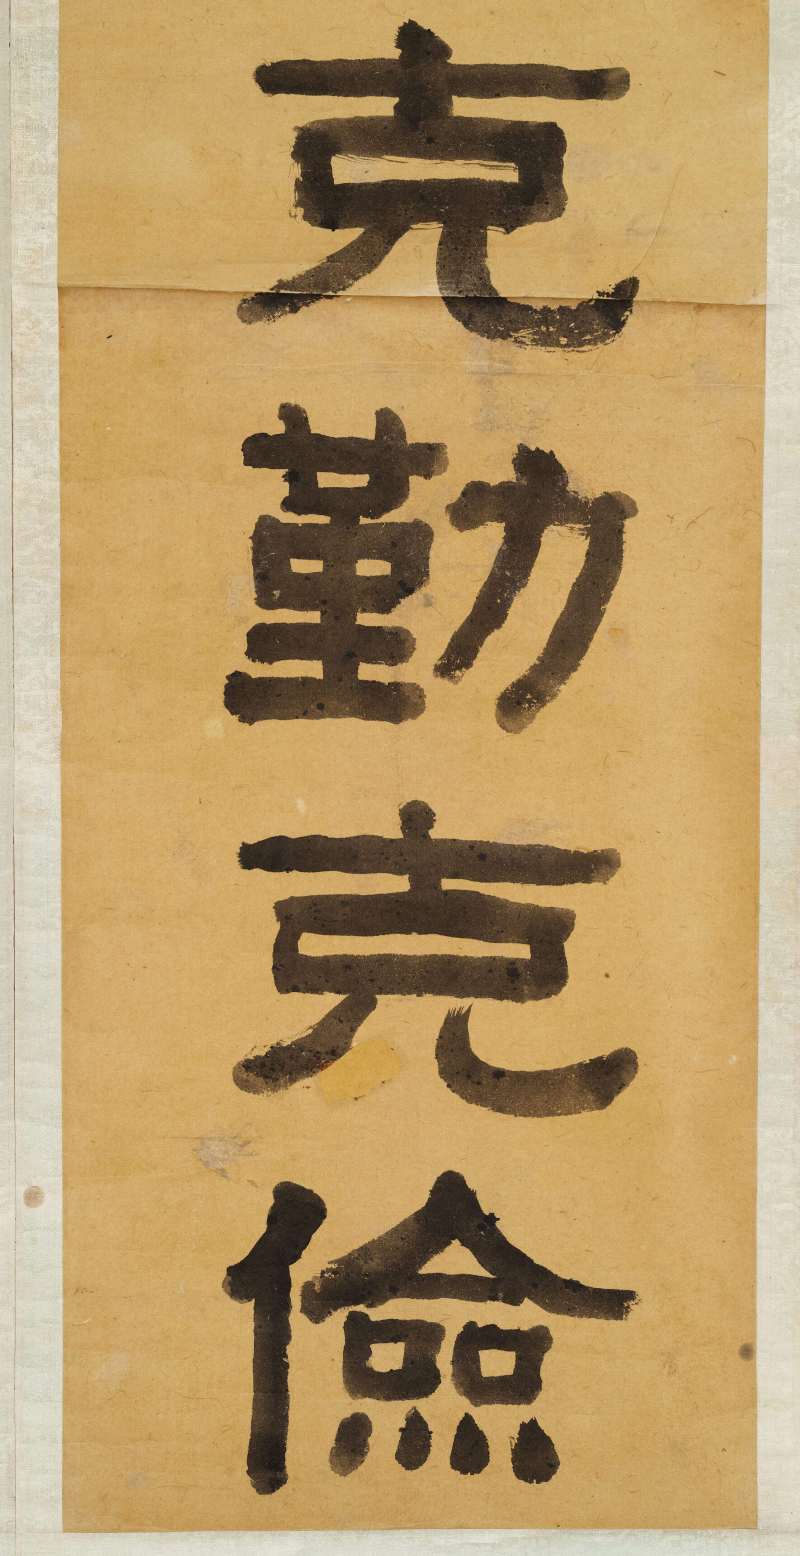 克勤克儉